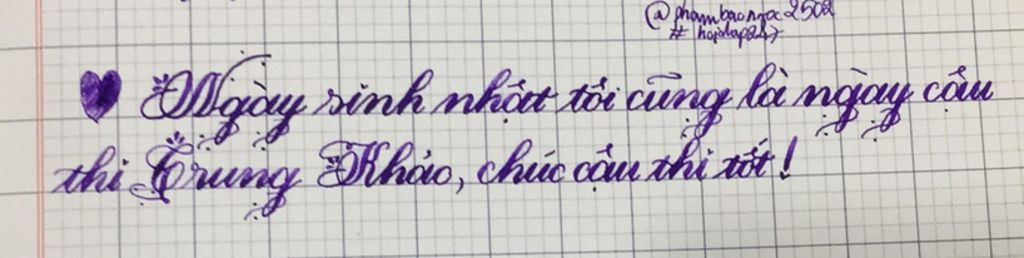 @phambaongoc2502
#hoidap247
Ngày sinh nhật tôi cũng là ngày cậu
thi Trung Khảo, chúc cậu thi tốt!